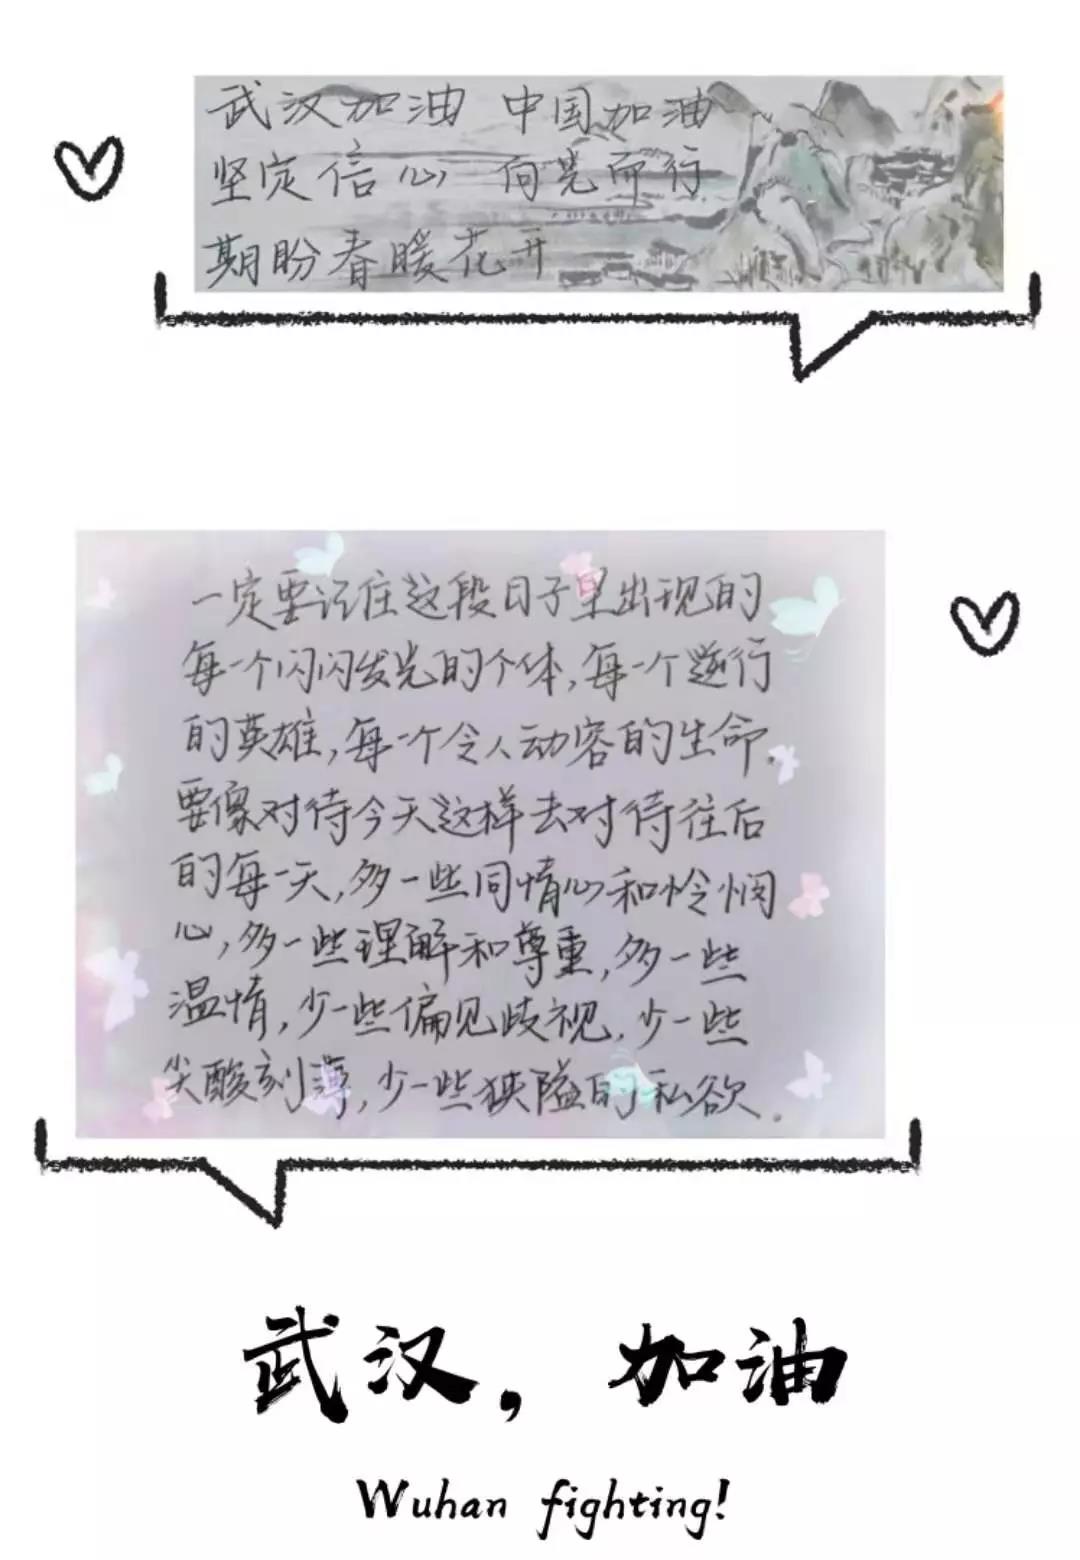 武汉加油 中国加油
坚定信心 向光而行
期盼春暖花开
一定要记住这段日子里出现的
每一个闪闪发光的个体,每一个逆行
的英雄,每一个令人动容的生命.
要像对待今天这样去对待往后
的每一天,多一些同情心和怜悯
心,多一些理解和尊重,多一些
温情,少一些偏见歧视.少一些
尖酸刻薄,少一些狭隘的私欲.
武汉，加油
Wuhan fighting!